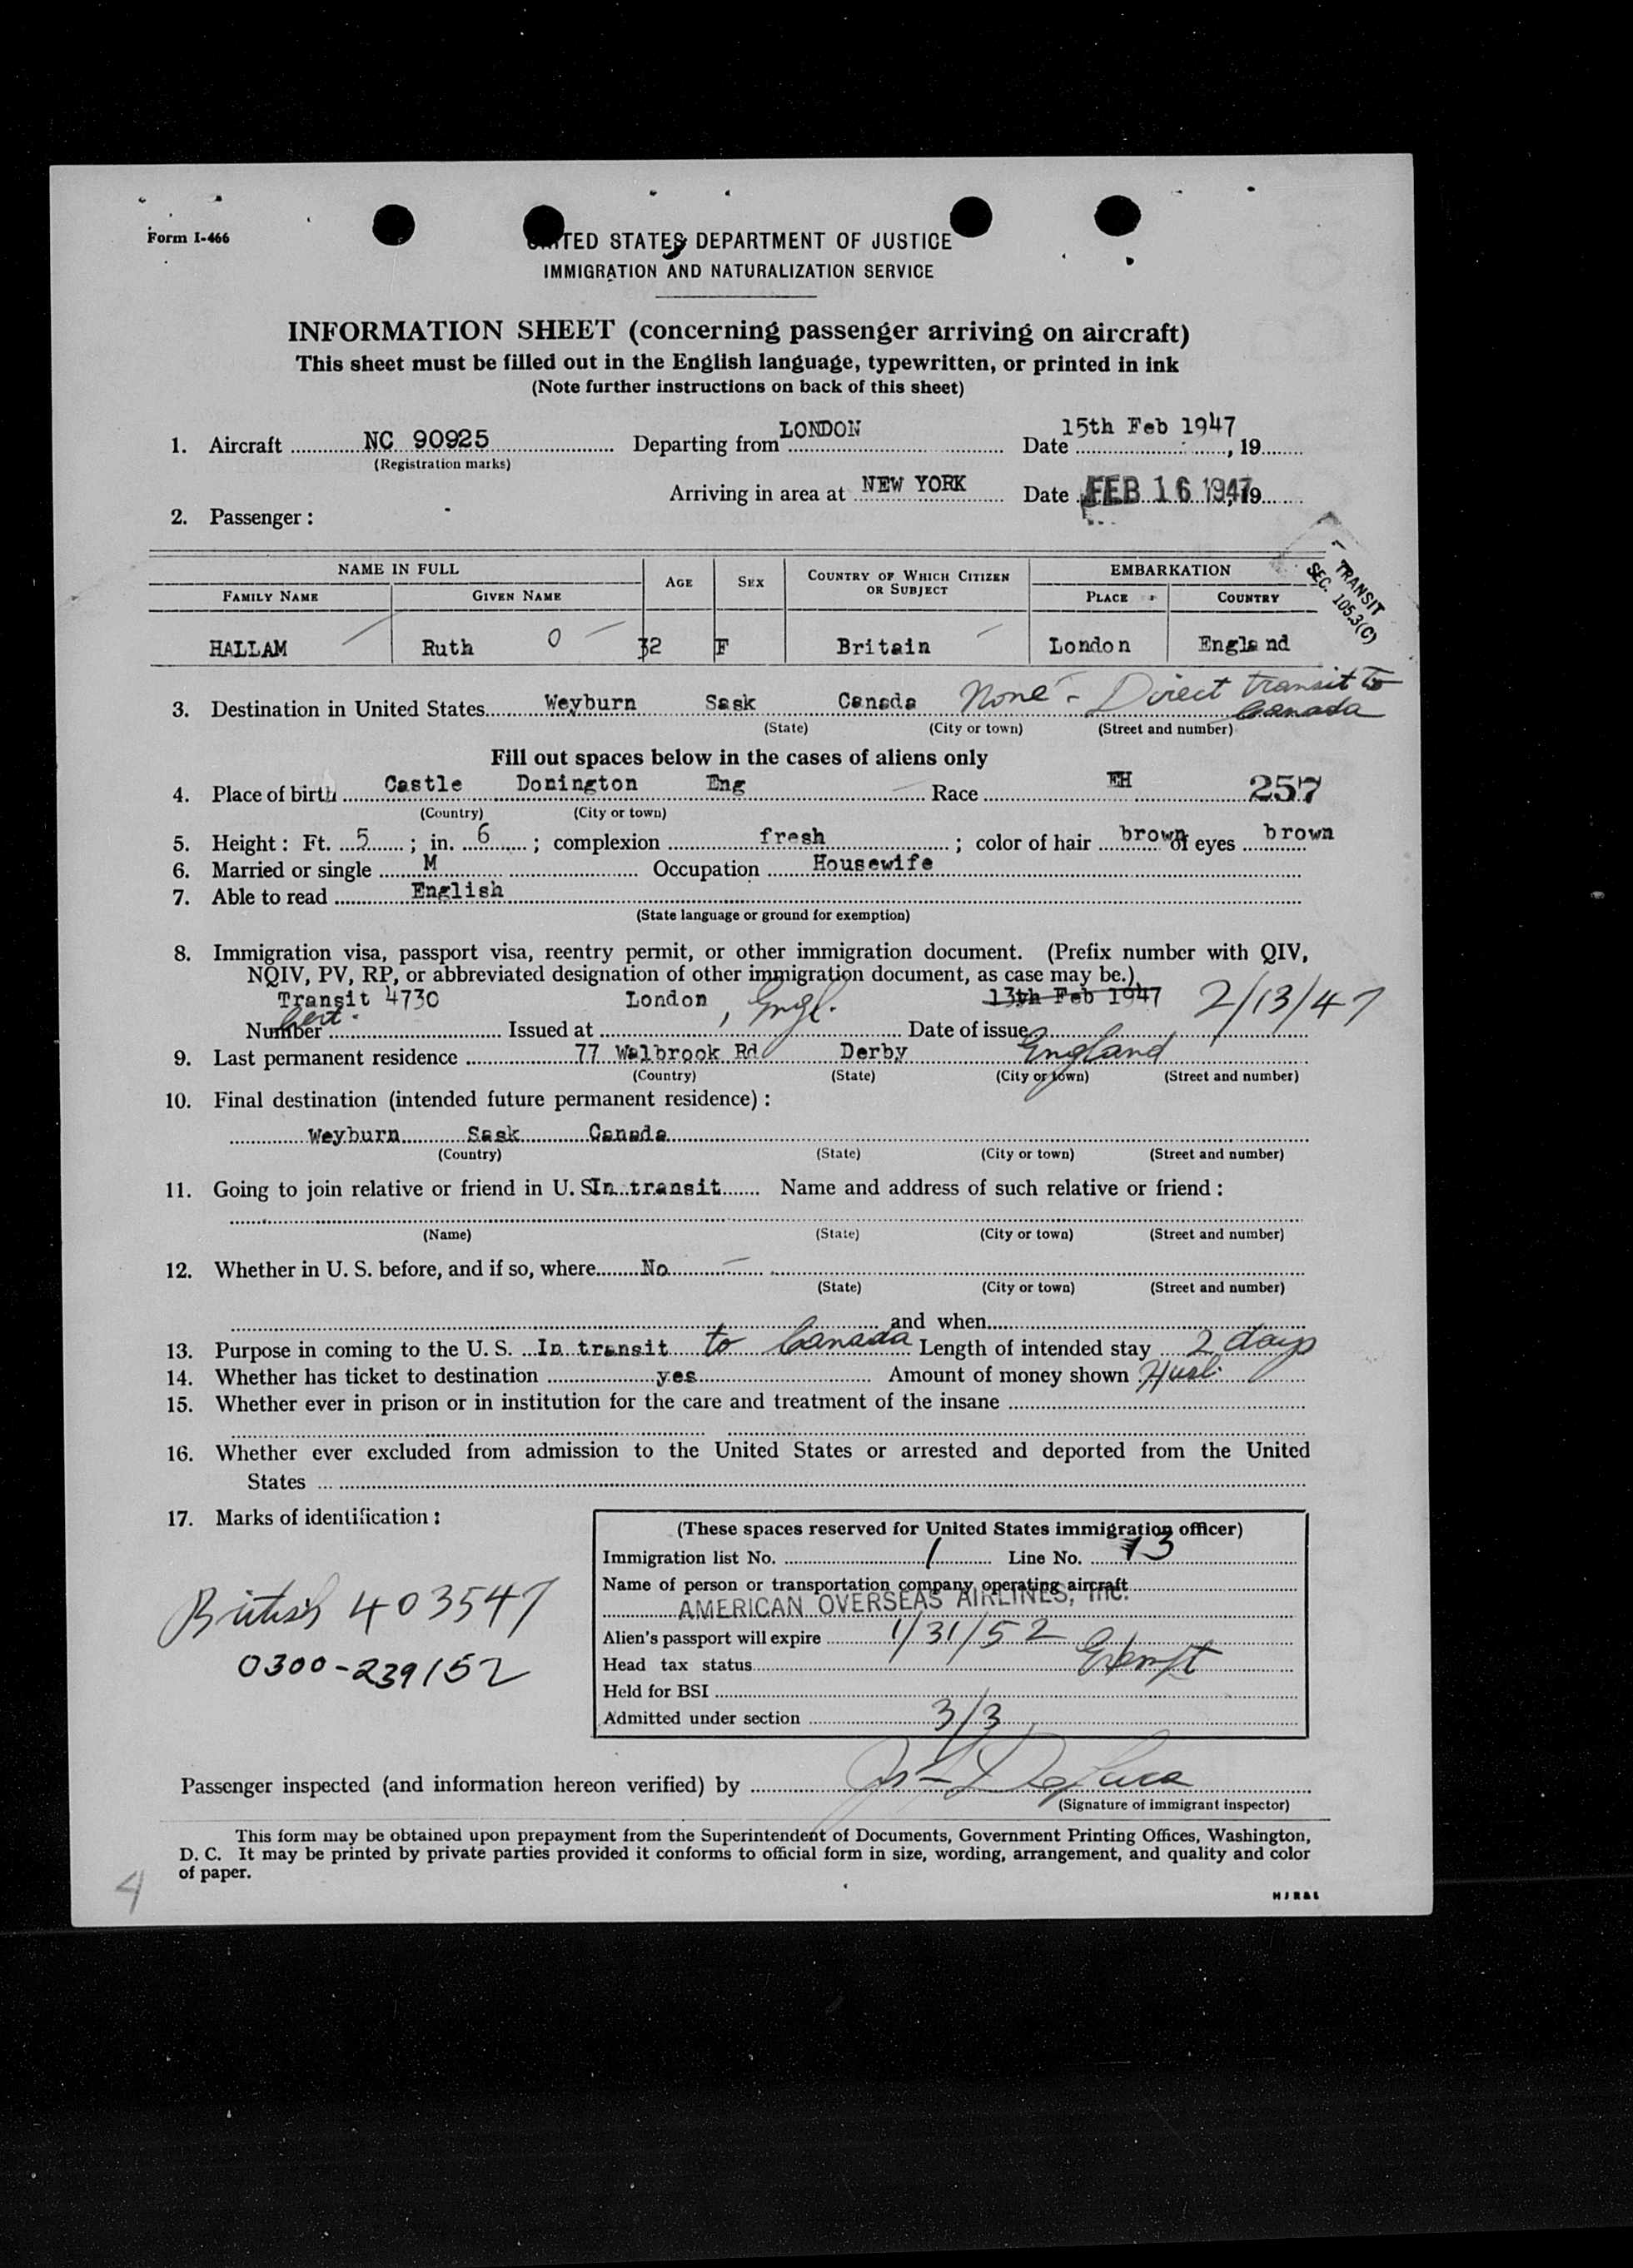 Form I-466
UNITED STATES DEPARTMENT OF JUSTICE
IMMIGRATION AND NATURALIZATION SERVICE
INFORMATION SHEET (concerning passenger arriving on aircraft)
This sheet must be filled out in the English language, typewritten, or printed in ink
(Note further instructions on back of this sheet)
1. Aircraft NC 90925 Departing from LONDON Date 15th Feb 1947, 19
(Registration marks)
Arriving in area at NEW YORK Date FEB 16 1947, 19
2. Passenger:
TRANSIT
SEC. 105.3(C)
NAME IN FULL AGE SEX COUNTRY OF WHICH CITIZEN OR SUBJECT EMBARKATION
FAMILY NAME GIVEN NAME PLACE COUNTRY
HALLAM Ruth 0 32 F Britain London England
3. Destination in United States Weyburn Sask Canada None - Direct transit to Canada
(State) (City or town) (Street and number)
Fill out spaces below in the cases of aliens only
4. Place of birth Castle Donington Eng Race EH 257
(Country) (City or town)
5. Height: Ft. 5; in. 6; complexion fresh; color of hair brown of eyes brown
6. Married or single M Occupation Housewife
7. Able to read English
(State language or ground for exemption)
8. Immigration visa, passport visa, reentry permit, or other immigration document. (Prefix number with QIV,
NQIV, PV, RP, or abbreviated designation of other immigration document, as case may be.)
Transit 4730 London, Engl. 13th Feb 1947 2/13/47
Cert.
Number Issued at Date of issue
9. Last permanent residence 77 Walbrook Rd Derby England
(Country) (State) (City or town) (Street and number)
10. Final destination (intended future permanent residence):
Weyburn Sask Canada
(Country) (State) (City or town) (Street and number)
11. Going to join relative or friend in U. S. In transit Name and address of such relative or friend:
(Name) (State) (City or town) (Street and number)
12. Whether in U. S. before, and if so, where No
(State) (City or town) (Street and number)
and when
13. Purpose in coming to the U. S. In transit to Canada Length of intended stay 2 days
14. Whether has ticket to destination yes Amount of money shown Husb.
15. Whether ever in prison or in institution for the care and treatment of the insane
16. Whether ever excluded from admission to the United States or arrested and deported from the United
States
17. Marks of identification:
British 403547
0300-239152
(These spaces reserved for United States immigration officer)
Immigration list No. 1 Line No. 13
Name of person or transportation company operating aircraft
AMERICAN OVERSEAS AIRLINES, INC.
Alien's passport will expire 1/31/52
Head tax status Exempt
Held for BSI
Admitted under section 3/3
Passenger inspected (and information hereon verified) by
(Signature of immigrant inspector)
This form may be obtained upon prepayment from the Superintendent of Documents, Government Printing Offices, Washington,
D. C. It may be printed by private parties provided it conforms to official form in size, wording, arrangement, and quality and color
of paper.
4
H J R & L